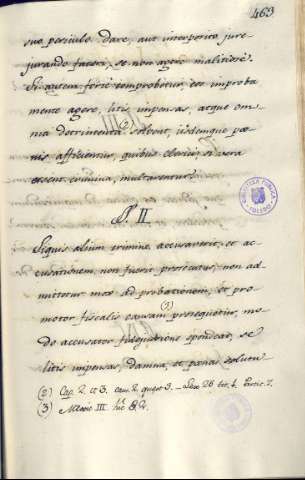 463
suo periculo dare, aut interposito jure-
jurando fateri, se non agere malitiosè.
Si autem fortè comprobetur, eos improba
mente agere, litis impensas, atque om
nia detrimenta solvent, iisdemque pœ
nis afficientur, quibus clerici, si vera
essent crimina, multarentur.
§. II
Siquis alium crimine accusaverit, et ac
cusationem non fuerit prosecutus, non ad
mittetur mox ad probationem, et pro
motor fiscalis causam (3) prosequetur, mo
do accusator fidejussione spondeat, se
litis impensas, damna, et pœnas solutu
(2) Cap. 2. et 3. caus. 2. quæst. 3. — Lex 26 tit. 1. Partit. 7.
(3) Mexic. III. hic §. 2.
BIBLIOTECA PUBLICA
TOLEDO